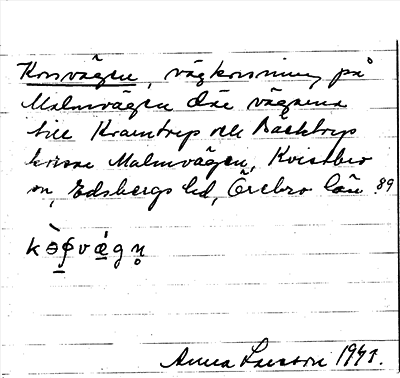 Korsvägen, vägkorsning på
Malmvägen där vägarna
till Kramtorp och Backtorp
korsar Malmvägen, Kvistbro
sn, Edsbergs hd, Örebro län. 89
Anna Larsson 1941.